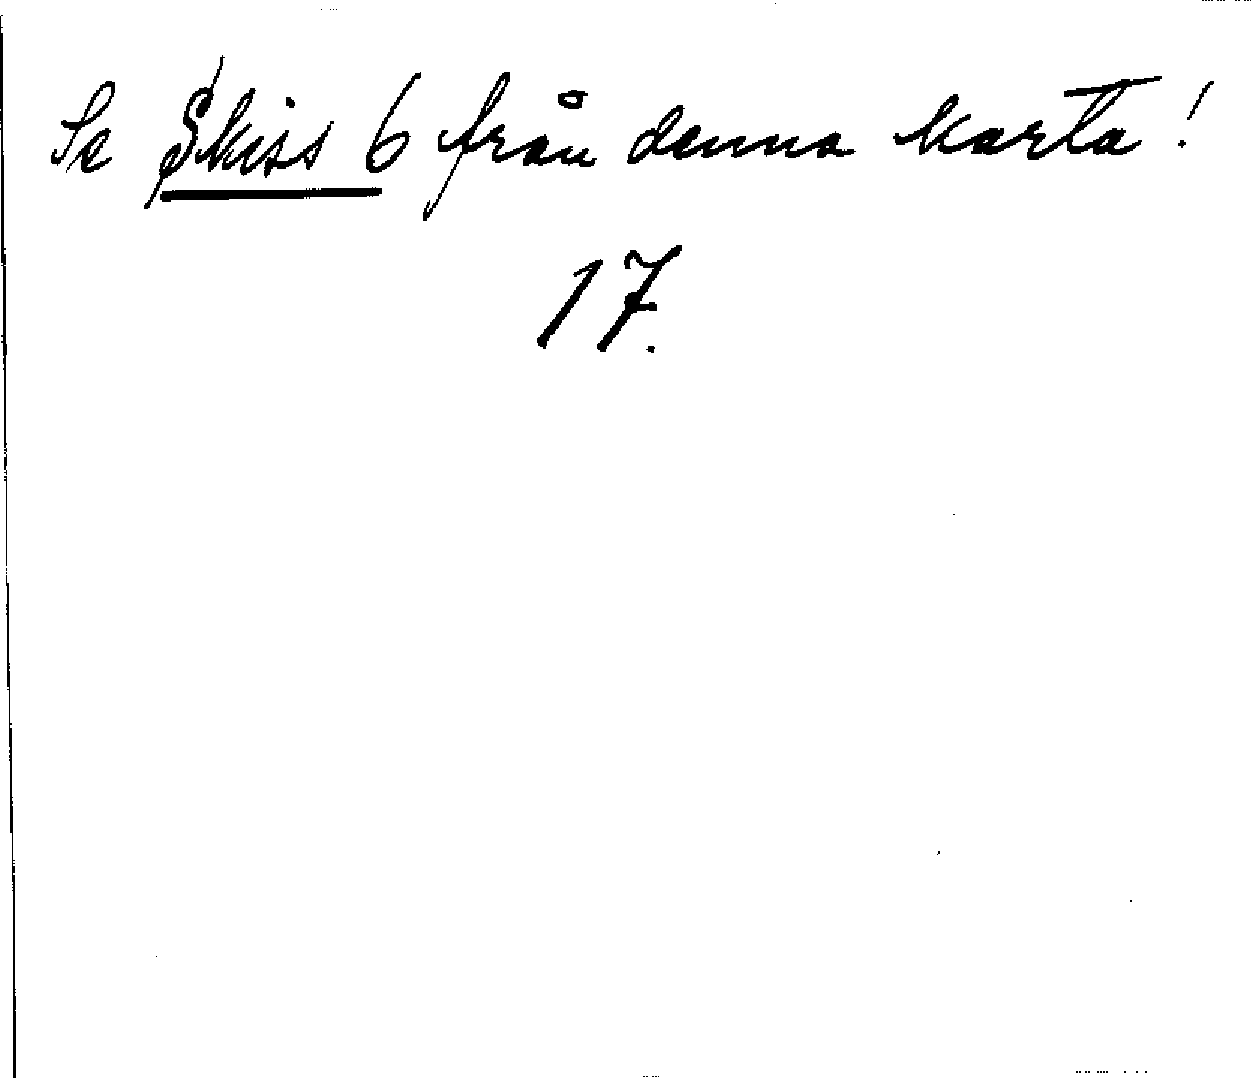 Se Skiss 6 från denna karta!
17.